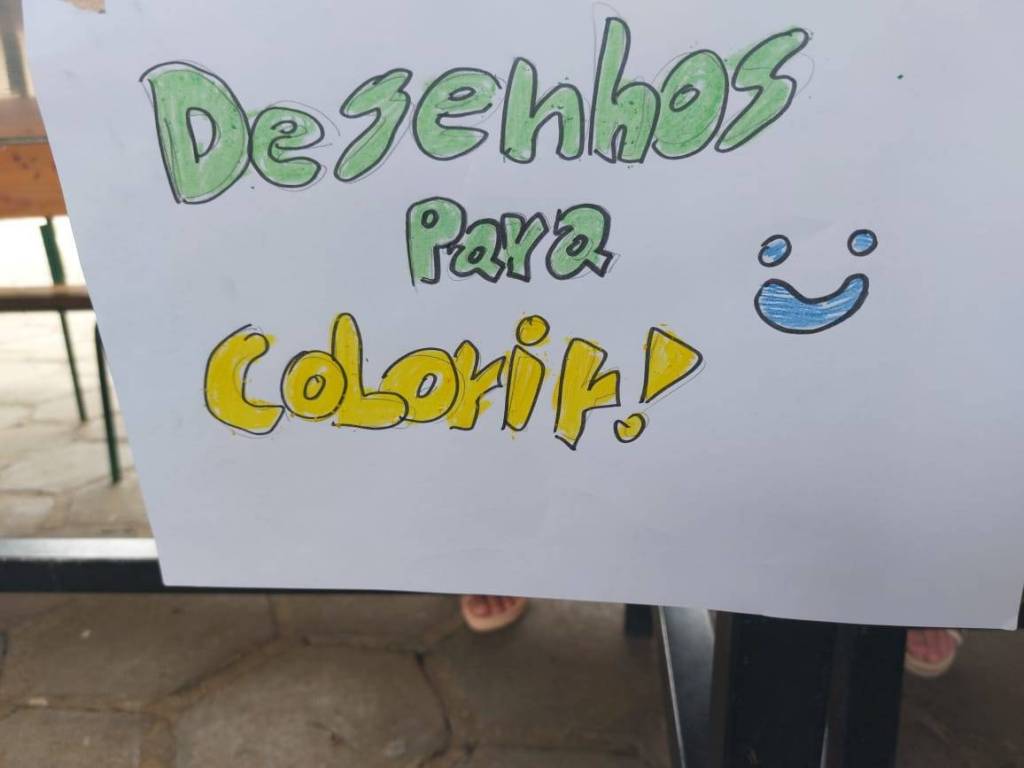 Desenhos
Para
Colorir!